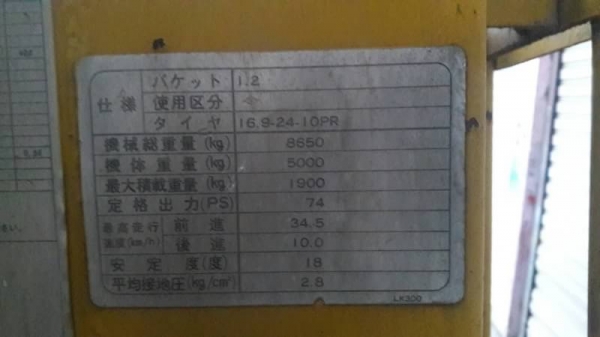 仕様 バケット 1.2
使用区分
タイヤ 16.9-24-10PR
機械総重量(kg) 8650
機体重量(kg) 5000
最大積載重量(kg) 1900
定格出力(PS) 74
最高走行速度(km/h) 前進 34.5
後進 10.0
安定度(度) 18
平均接地圧(kg/cm²) 2.8
LK300